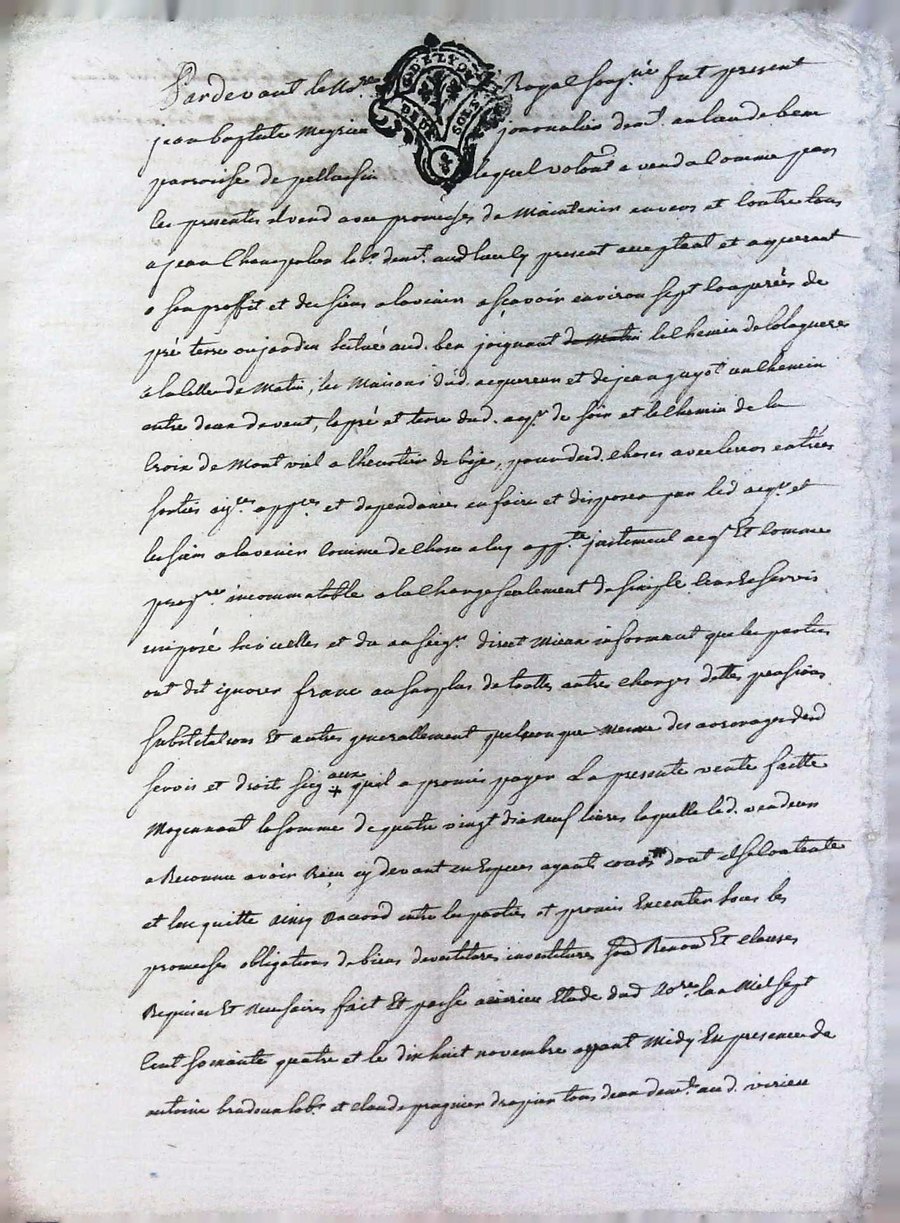 G. DE LYON
DEUX SOLS
Pardevant le No.re Royal soussig.né fut present
jean baptiste Meyrieu journalier dem.t au lieu de bem
parroisse de pellussin lequel volont.t a vendu comme par
les presentes il vend avec promesses de Maintenir envers et contre tous
a jean Champalon lab.r dem.t aud lieu ly present acceptant et aquerant
a son proffit et des siens a lavenir asçavoir environ sept couperées de
pré terre ou jardin scitué aud. bem joignant de Matin le chemin de
a la celle de Matin, les Maisons dud. acquereur et de jean guyot un chemin
entre deux de vent, le pré et terre dud. aq.r de soir et le chemin de la
Croix de Mont viel a de bize, pour desd. choses avec leurs entrées
sorties ays.ces app.ces et dependances en faire et disposer par led acq.r et
les siens a lavenir comme de chose a luy app.te justement acq.se Et comme
prop.re incommutable a la Charge seulement du simple cens et servis
imposé sur icelles et du au seig.r direct Mieux informant que les parties
ont dit ignorer franc au surplus de touttes autres charges dettes pensions
substitutions Et autres generallement quelconque Meme des arrerages desd
servis et droit seig aux + quil a promis payer La presente vente faitte
Moyennant la somme de quatre vingt dix Neuf livres laquelle led. vendeur
a Reconnu avoir Reçu cy devant en Especes ayant cours dont il se contente
et len quitte ainsy Daccord entre les parties et promis Executer sous les
promesses obligations de biens devestitures investitures Et clauses
Requises Et Necessaires fait Et passé a virieu Etude dud No.re lan Mil sept
Cent soixante quatre et le dix huit novembre avant Midy En presence de
antoine lab.r et claude pragnier drapier tous deux dem.t aud. virieu